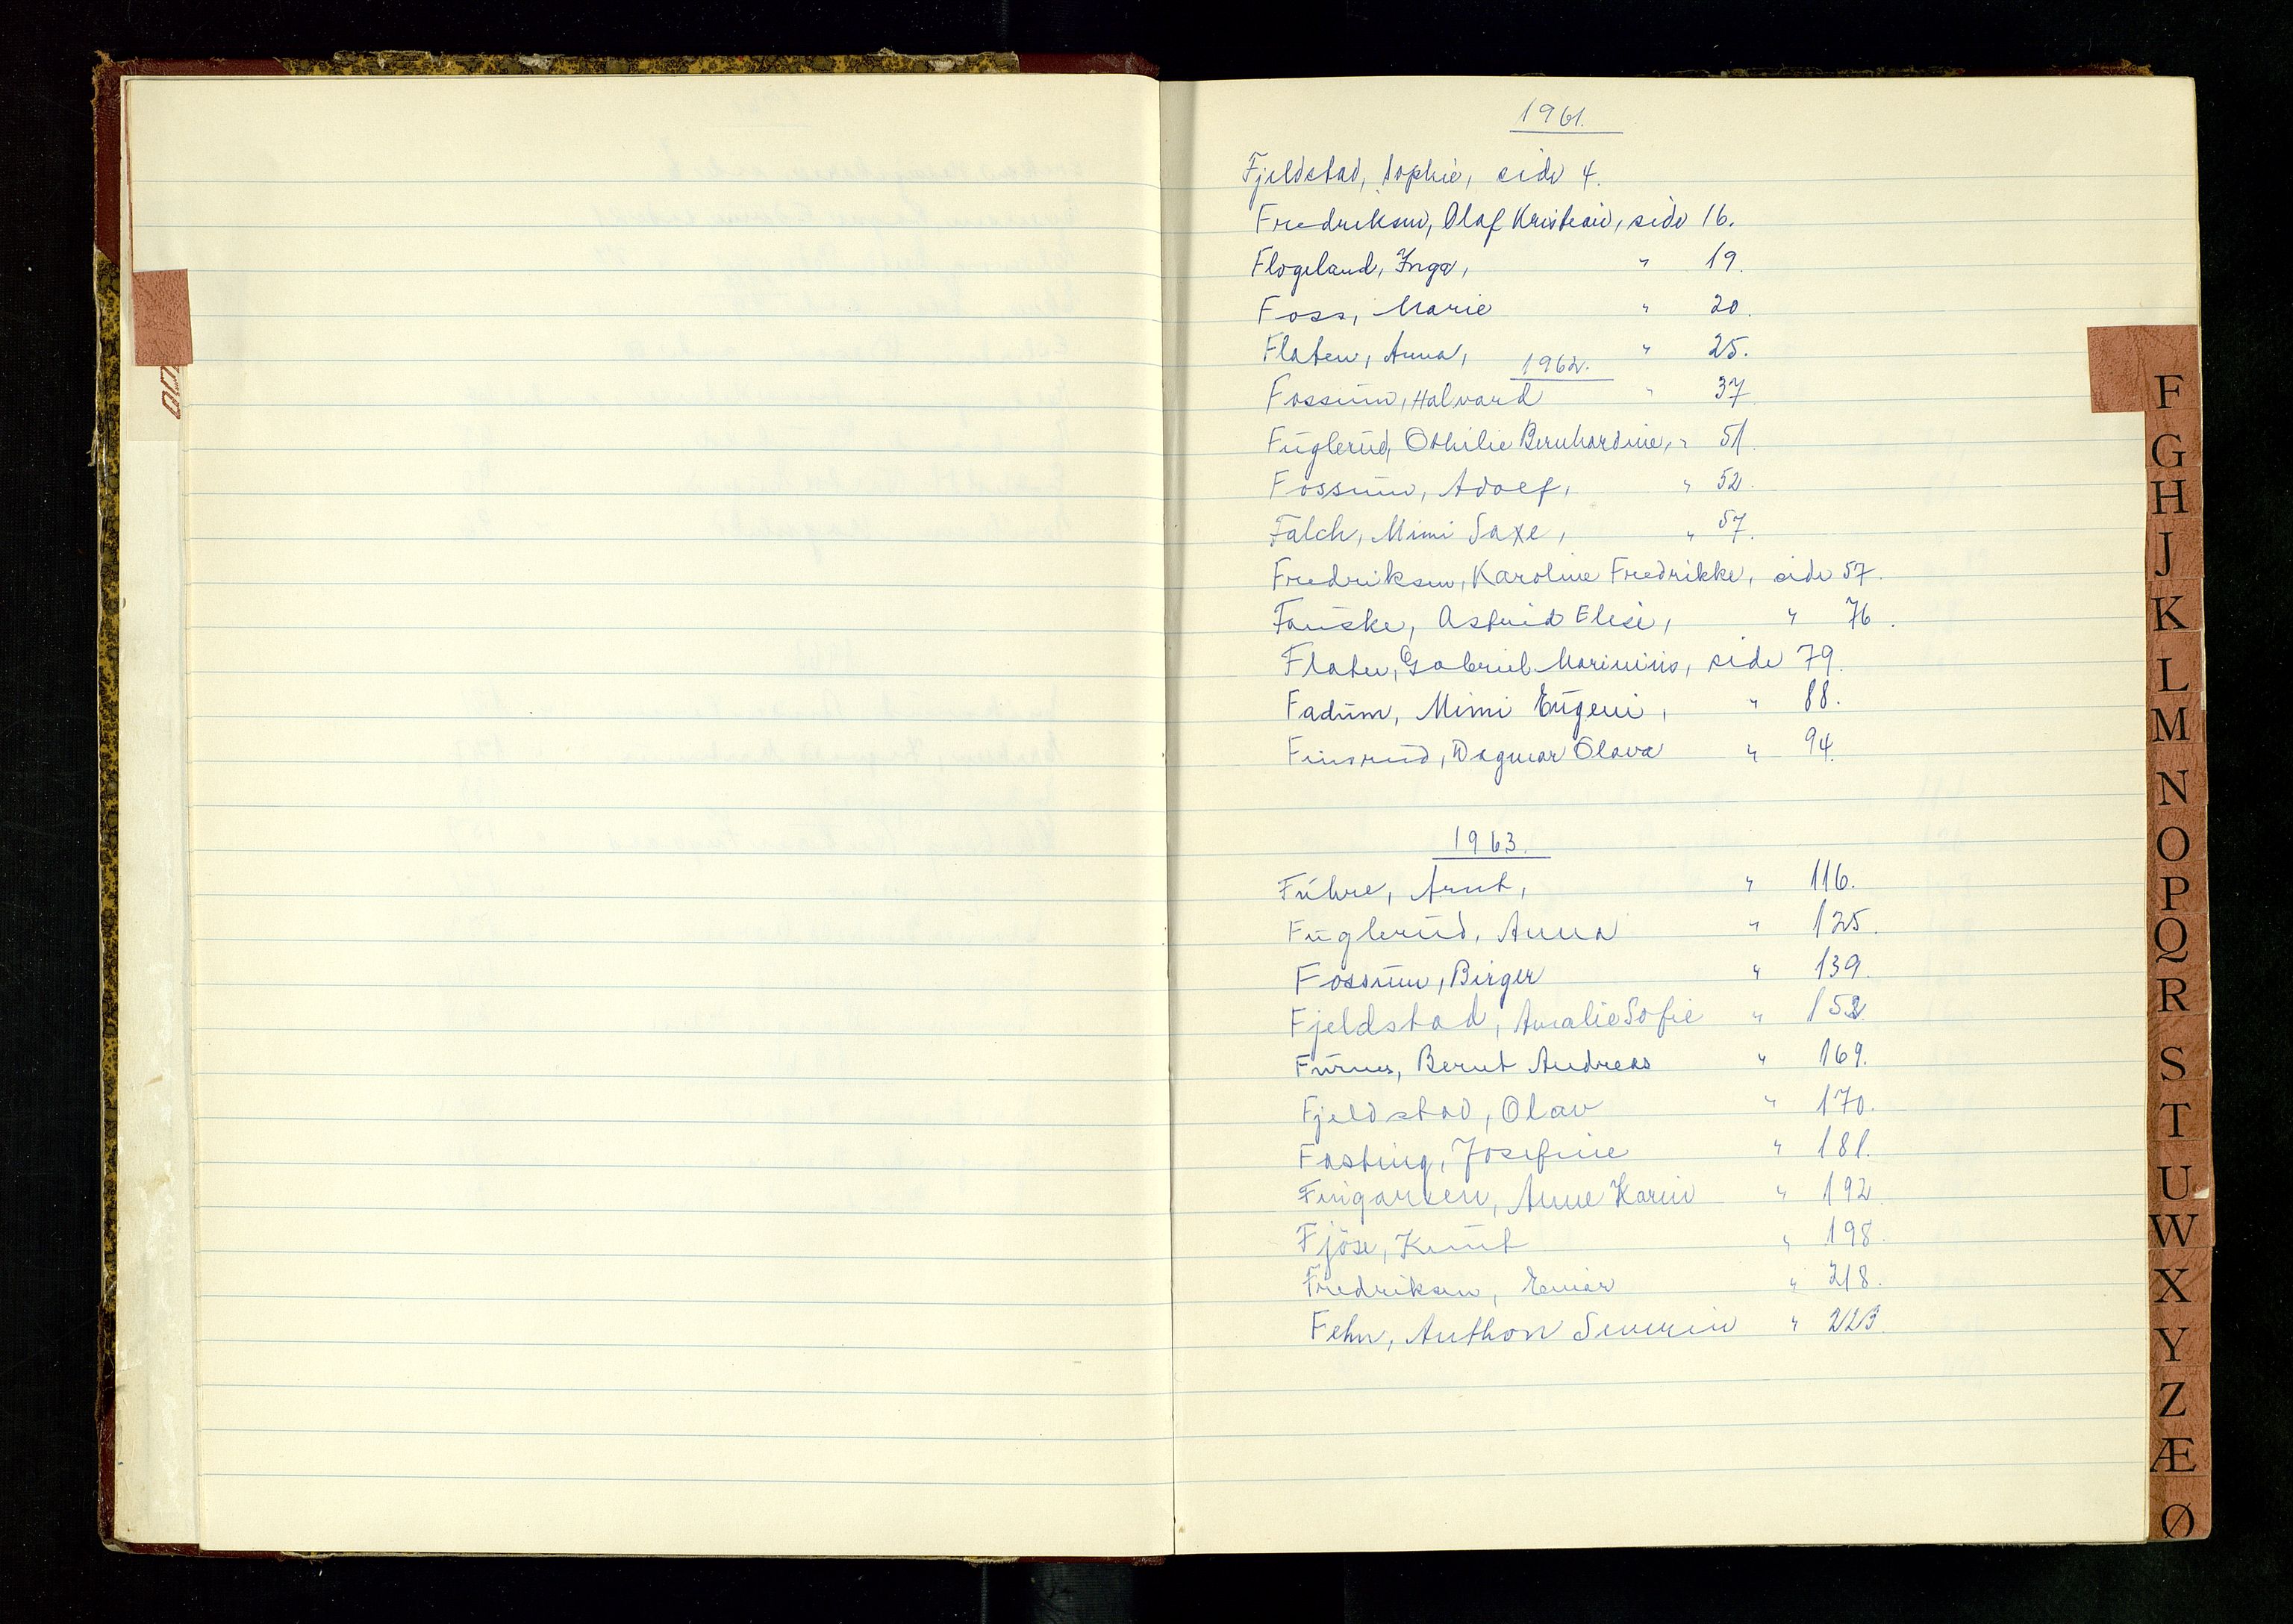 1961.
Fjeldstad, Sophie, side 4.
Fredriksen, Olaf Kristian, side 16.
Flogeland, Inga, " 19.
Foss, Marie " 20.
Flaten, Anna, " 25.
1962.
Fossum, Halvard " 37
Fuglerud, Othilie Bernhardine, " 51.
Fossum, Adolf, " 52.
Falch, Mimi Saxe, " 57.
Fredriksen, Karoline Fredrikke, side 57.
Fauske, Astrid Elise, " 76.
Flaten, Gabriel Marinius, side 79.
Fadum, Mimi Eugeni, " 88.
Finsrud, Dagmar Olava " 94.
1963.
Fuhre, Arnt, " 116.
Fuglerud, Anna " 125.
Fossum, Birger " 139.
Fjeldstad, Amalie Sofie " 152.
Furnes, Bernt Andreas " 169.
Fjeldstad, Olav " 170.
Fasting, Josefine " 181.
Fingarsen, Anne Karin " 192
Fjöse, Knut " 198.
Fredriksen, Einar " 218.
Fehn, Anthon Severin " 223.
F
G
H
J
K
L
M
N
O
P
Q
R
S
T
U
W
X
Y
Z
Æ
Ø